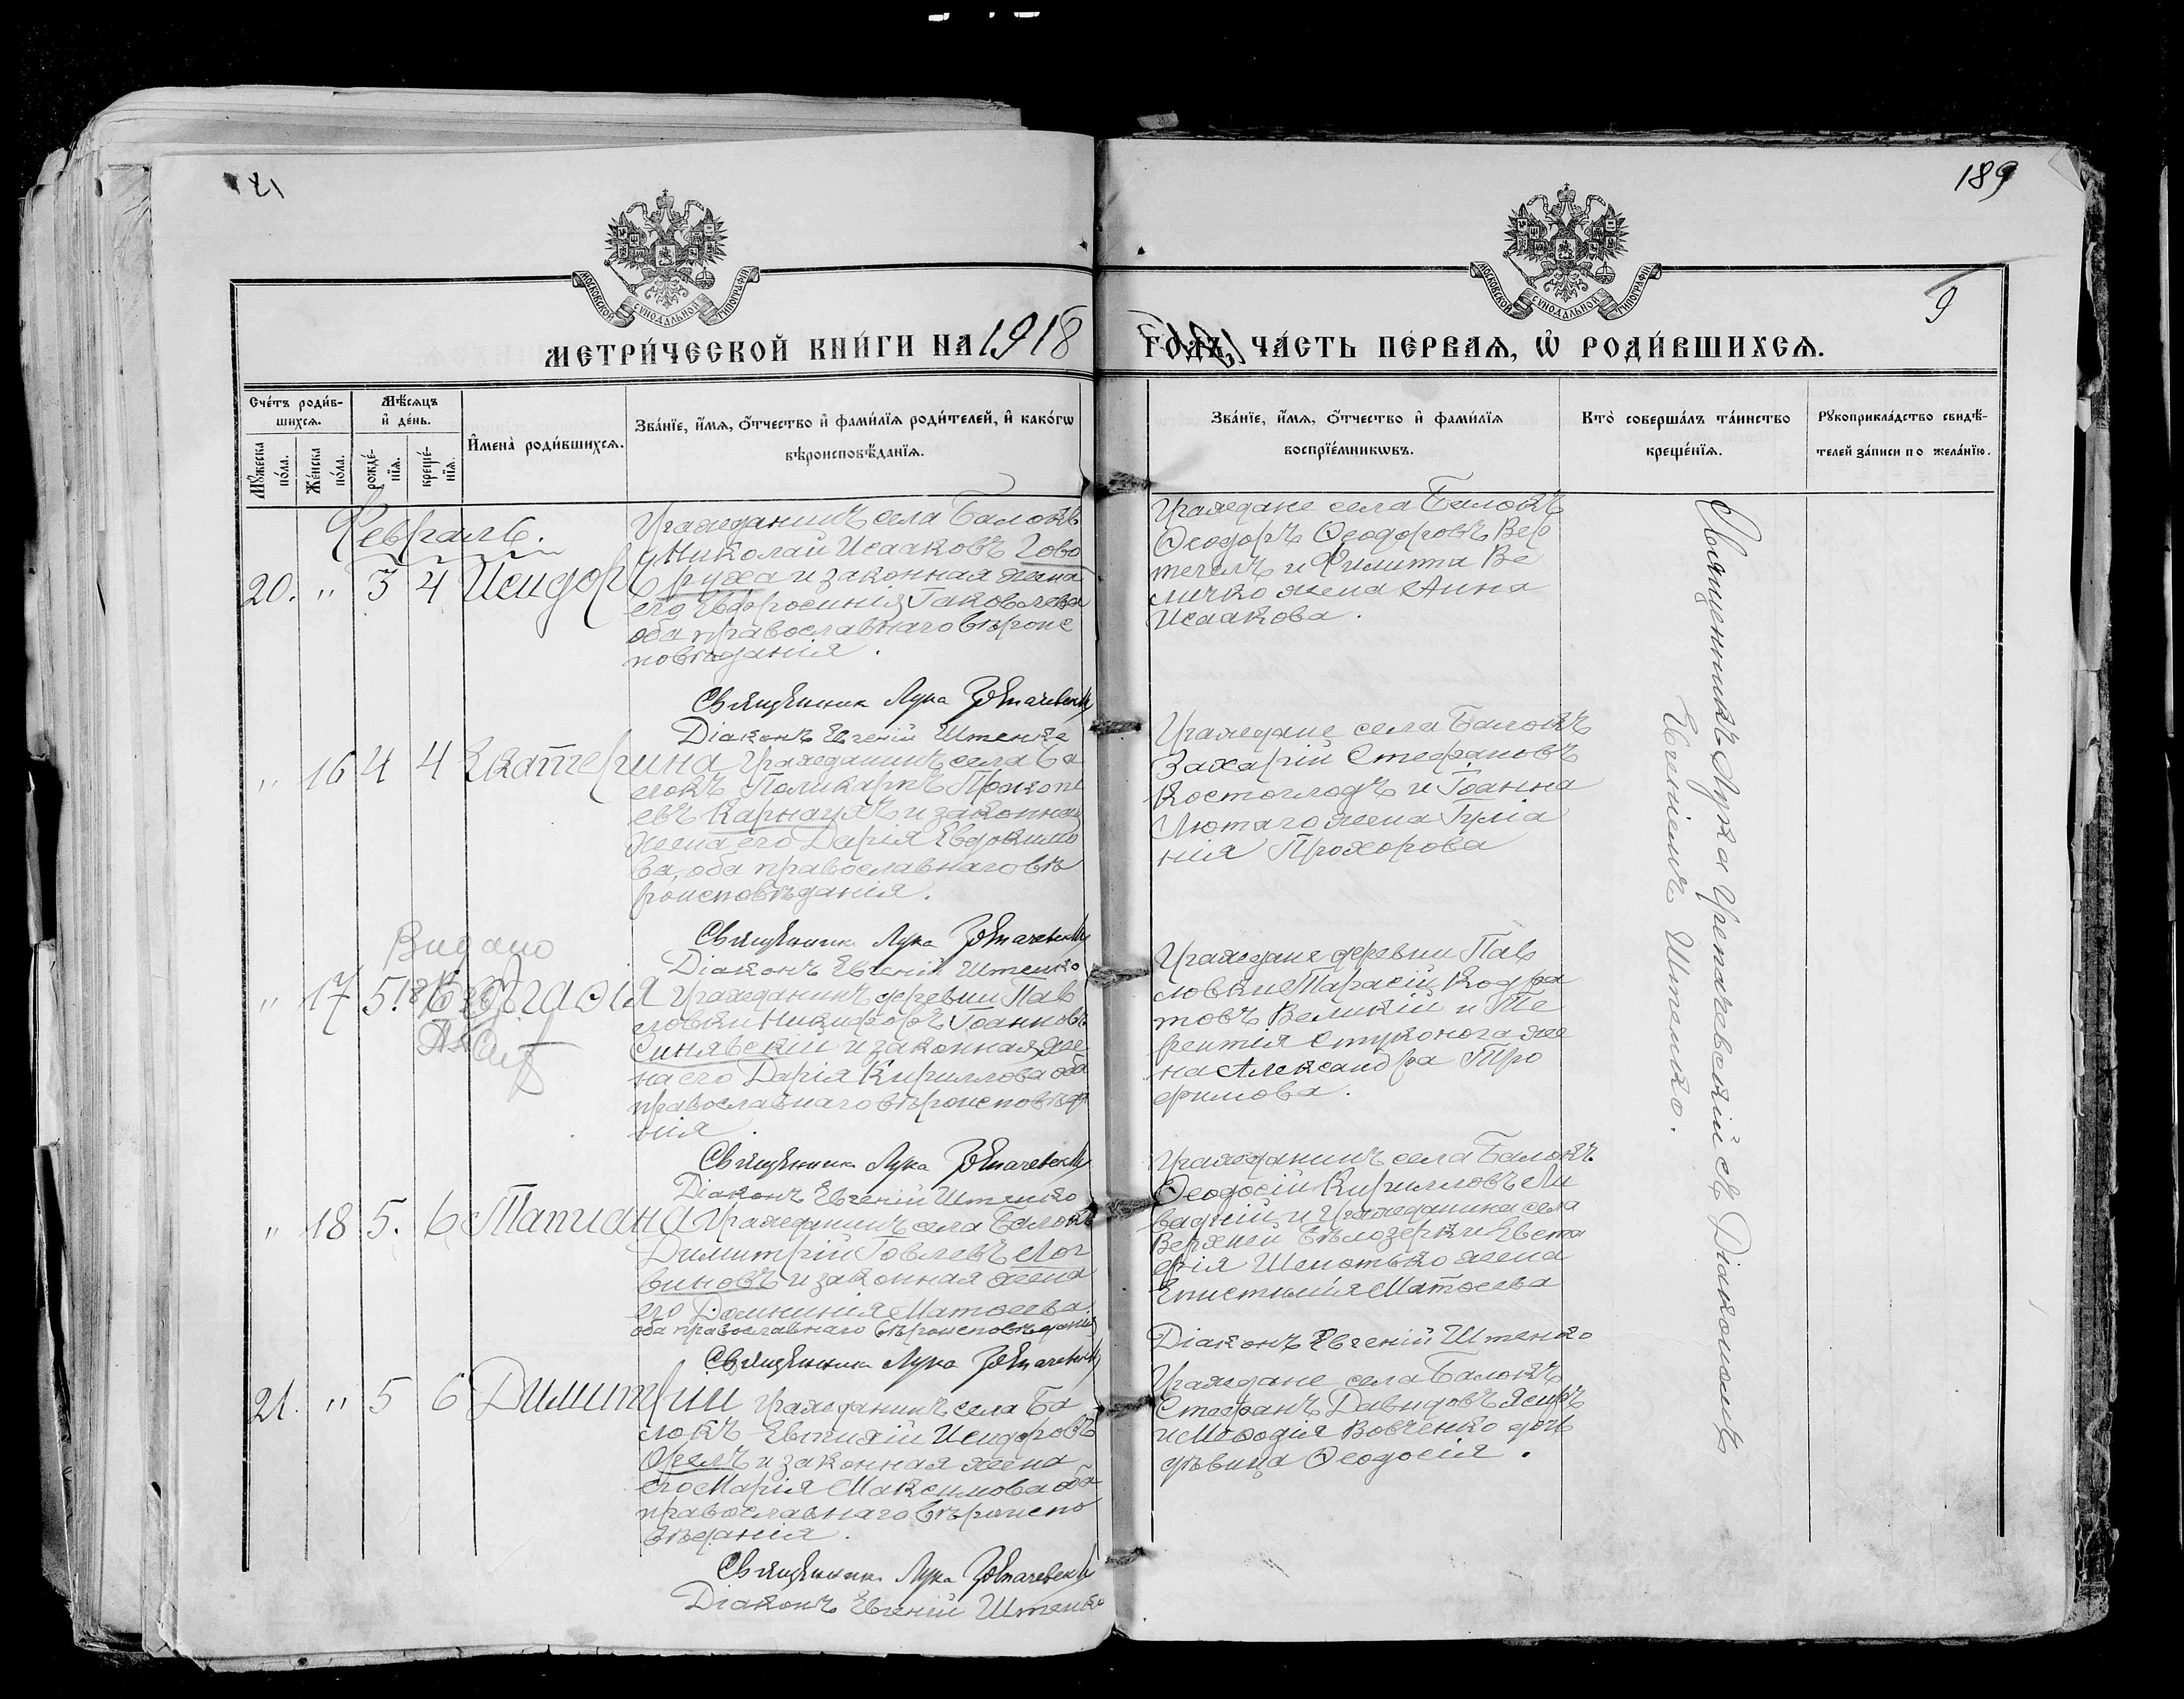 189
9
МОСКОВСКОЙ СѴНОДАЛЬНОЙ ТИПОГРАФІИ
МОСКОВСКОЙ СѴНОДАЛЬНОЙ ТИПОГРАФІИ
МЕТРИ́ЧЕСКОЙ КНИ́ГИ НА 1918 ГОДЪ, ЧА́СТЬ ПЕ́РВАѦ, Ѡ҆ РОДИ́ВШИХСѦ.
Сче́тъ роди́в-
шихсѧ.
Мꙋ́жеска по́ла.
Же́нска по́ла.
Мѣ́сѧцъ
и҆ де́нь.
рожде́-нїѧ.
креще́-нїѧ.
И҆мена̀ роди́вшихсѧ.
Зва́нїе, и҆́мѧ, ѻ҆́тчество и҆ фами́лїѧ роди́телей, и҆ како́гѡ
вѣроисповѣ́данїѧ.
Зва́нїе, и҆́мѧ, ѻ҆́тчество и҆ фами́лїѧ
воспрїе́мникѡвъ.
Кто̀ соверша́лъ та́инство
креще́нїѧ.
Рꙋкоприкла́дство свидѣ́-
телей за́писи по жела́нїю.
Февраль.
20. " 3 4 Исидоръ
Гражданинъ села Балокъ
Николай Исааковъ Гово
руха и законная жена
его Евфросинія Іаковлева
оба православнаго вѣроис
повѣданія.
Священникъ Лука
Діаконъ Евгеній Штенко
Граждане села Балокъ
Ѳеодоръ Ѳеодоровъ Вер
течелъ и Филиппа Ве
личко жена Анна
Исаакова.
" 16 4 4 Екатерина
Гражданинъ села Ба
локъ Поликарпъ Прокопі
евъ Карнаухъ и законная
жена его Дарія Евдокимо
ва, оба православнаго вѣ
роисповѣданія.
Священникъ Лука
Діаконъ Евгеній Штенко
Граждане села Балокъ
Захарій Стефановъ
Костоглодъ и Іоанна
Лютаго жена Іуліа
нія Прохорова
Видано
" 17 5 6
Гражданинъ деревни Пав
ловки Никифоръ Іоанновъ
Синявскій и законная же
на его Дарія Кириллова оба
православнаго вѣроисповѣда
нія.
Священникъ Лука
Діаконъ Евгеній Штенко
Граждане деревни Пав
ловки Тарасій Кодра
товъ Великій и Те
рентія Стуконога же
на Александра Тро
фимова.
" 18 5. 6 Татиана
Гражданинъ села Балокъ
Димитрій Іовлевъ Лог
виновъ и законная жена
его Домникія Матѳеева
оба православнаго вѣроисповѣданія
Священникъ Лука
Гражданинъ села Балокъ
Ѳеодосій Кирилловъ Ли
вадній и гражданина села
Верхней Бѣлозерки Евста
фія Шепотько жена
Епистимія Матѳеева
Діаконъ Евгеній Штенко
21. " 5 6 Димитрій
Гражданинъ села Ба
локъ Евтихій Исидоровъ
Орелъ и законная жена
его Марія Максимова оба
православнаго вѣроиспо
вѣданія.
Священникъ Лука
Діаконъ Евгеній Штенко
Граждане села Балокъ
Стефанъ Давидовъ
и Меѳодія Вовченко дочь
дѣвица Ѳеодосія.
Священникъ Лука съ Діакономъ
Евгеніемъ Штенко.